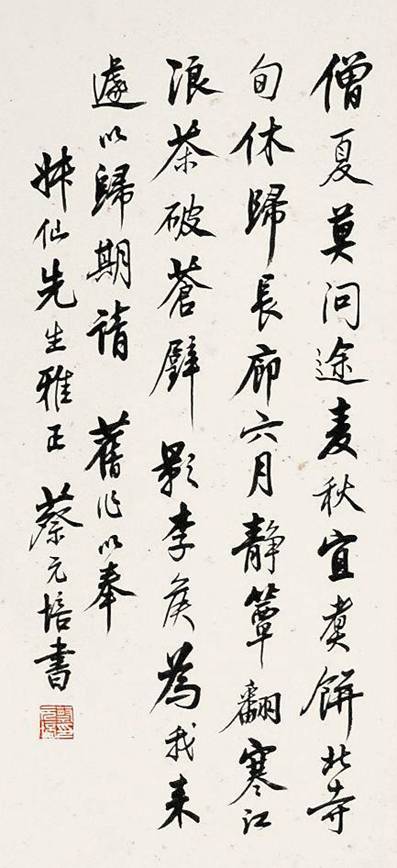 僧夏莫问途麦秋宜煮餅北寺
旬休歸長廊六月静簟翻寒江
浪茶破蒼璧影李侯為我来
遽以歸期請 舊作以奉
仙先生雅正 蔡元培書